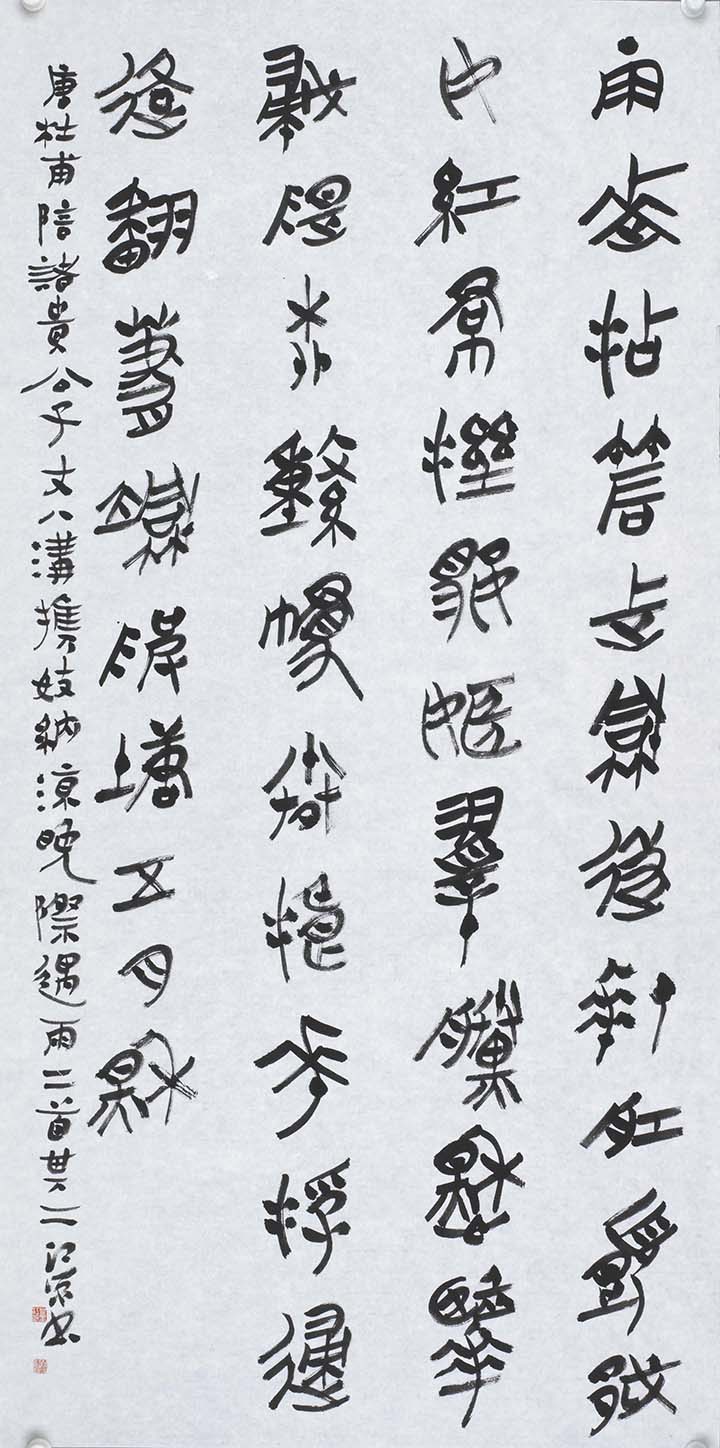 雨來沾席上風急打船頭越
女紅裙濕燕姬翠黛愁纜
侵隄柳繫幔宛浪花浮歸
路翻蕭颯陂塘五月秋
唐杜甫陪諸貴公子丈八溝攜妓納涼晚際遇雨二首其二 書